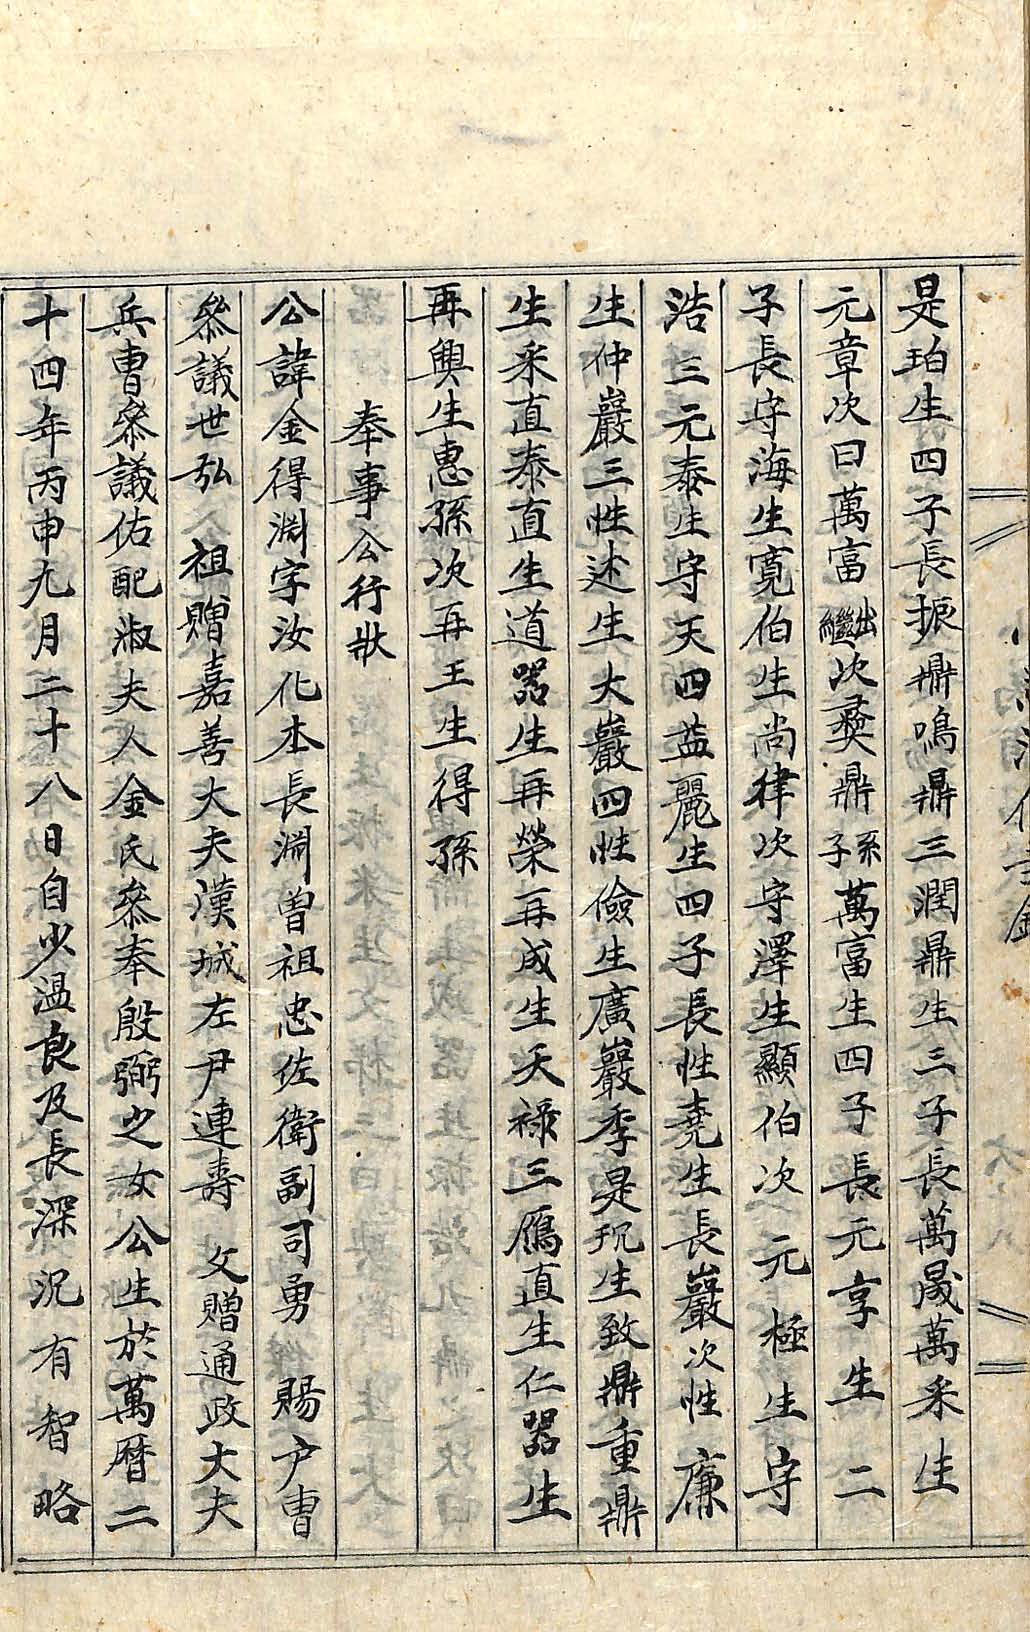 是珀生四子長振鼎鳴鼎三潤鼎生三子長萬晟萬采生
元章次曰萬富出繼次奭鼎系子萬富生四子長元享生二
子長守海生寬伯生尚律次守澤生顯伯次元極生守
浩三元泰生守天四益麗生四子長性堯生長巖次性廉
生仲巖三性述生大巖四性儉生廣巖季是玧生致鼎重鼎
生采直泰直生道器生再榮再成生天祿三鴈直生仁器生
再興生惠孫次再王生得孫
奉事公行狀
公諱金得淵字汝化本長淵曾祖忠佐衛副司勇賜戶曹
叅議世弘祖贈嘉善大夫漢城左尹連壽父贈通政大夫
兵曹叅議佑配淑夫人金氏叅奉殷弼之女公生於萬曆二
十四年丙申九月二十八日自少溫良及長深況有智略